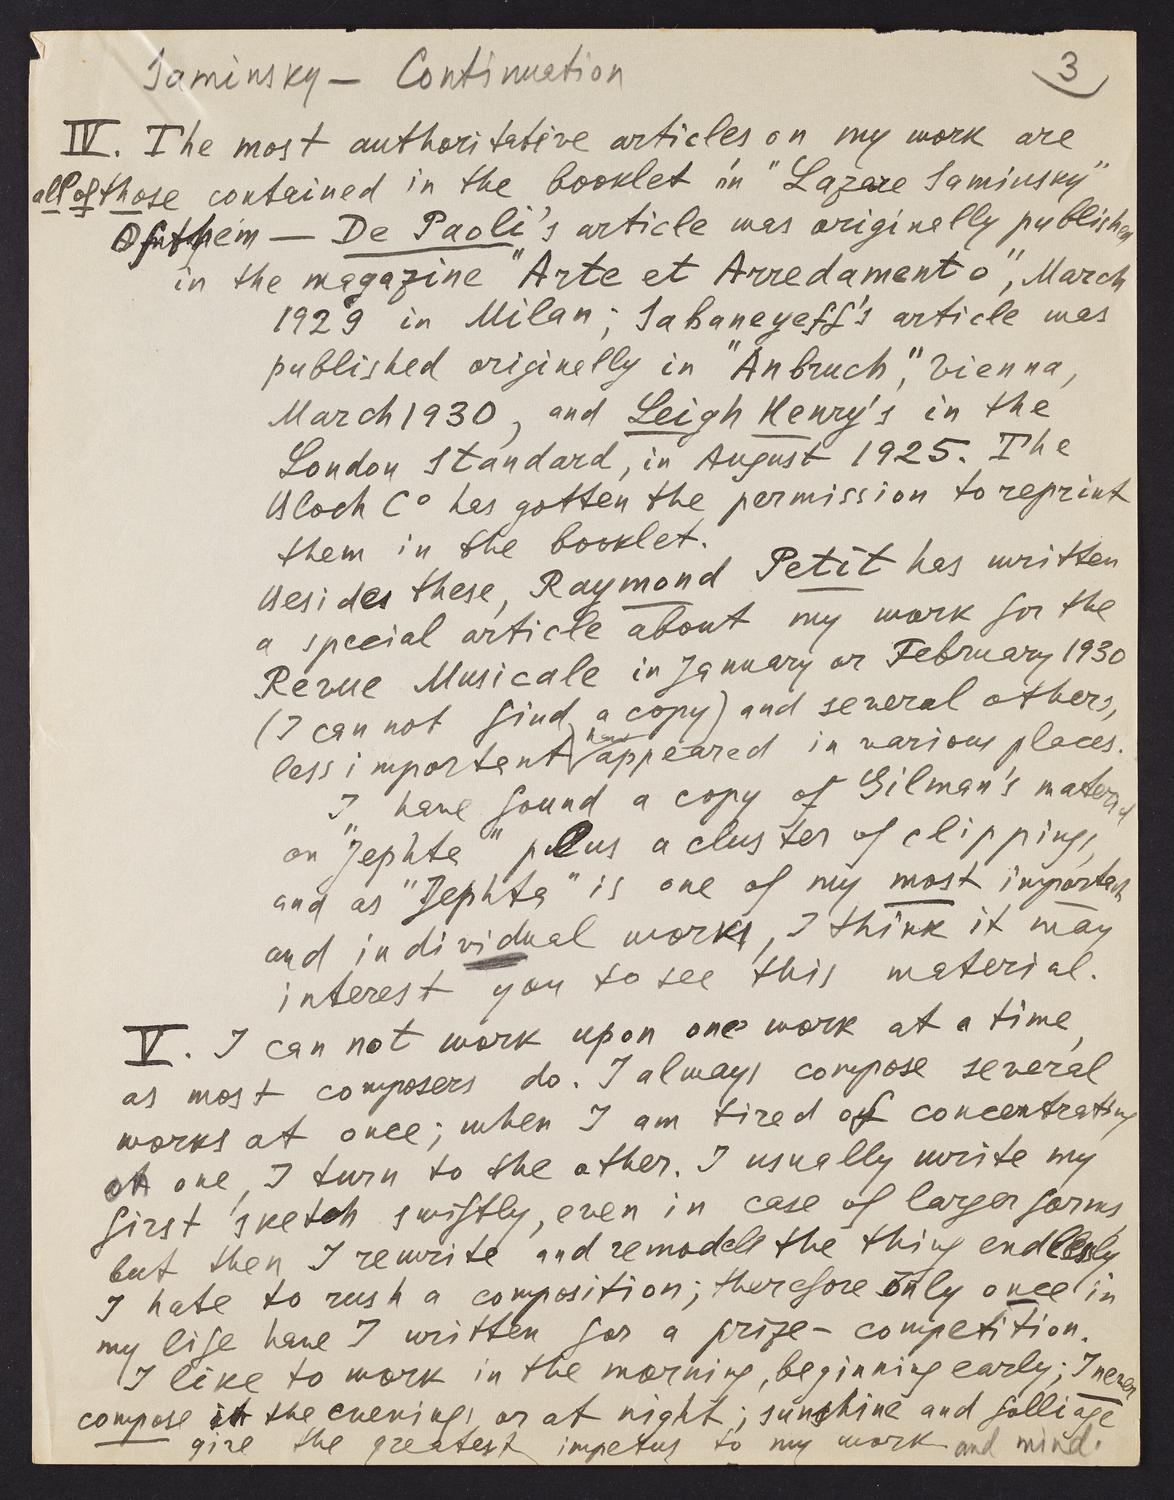 Saminsky — Continuation
3
IV. The most authoritative articles on my work are
all of those contained in the booklet in "Lazare Saminsky"
Of them — De Paoli's article was originelly publishe
in the magazine "Arte et Arredamento", March
1929 in Milan; Sabaneyeff's article was
published originelly in "Anbruch", Vienna,
March 1930, and Leigh Henry's in the
London Standard, in August 1925. The
Bloch Co has gotten the permission to reprint
them in the booklet.
Besides these, Raymond Petit has written
a special article about my work for the
Revue Musicale in January or February 1930
(I can not find a copy) and several others,
less important have appeared in various places.
I have found a copy of Gilman's material
on "Jephta" plus a cluster of clippings,
and as "Jephta" is one of my most important
and individual works, I think it may
interest you to see this material.
V. I can not work upon one work at a time,
as most composers do. I always compose several
works at once; when I am tired of concentrating
on one, I turn to the other. I usually write my
first sketch swiftly, even in case of larger forms,
but then I rewrite and remodell the thing endlessly
I hate to rush a composition; therefore only once in
my life have I written for a prize-competition.
I like to work in the morning, beginning early; I never
compose in the evenings or at night; sunshine and folliage
give the greatest impetus to my work and mind.